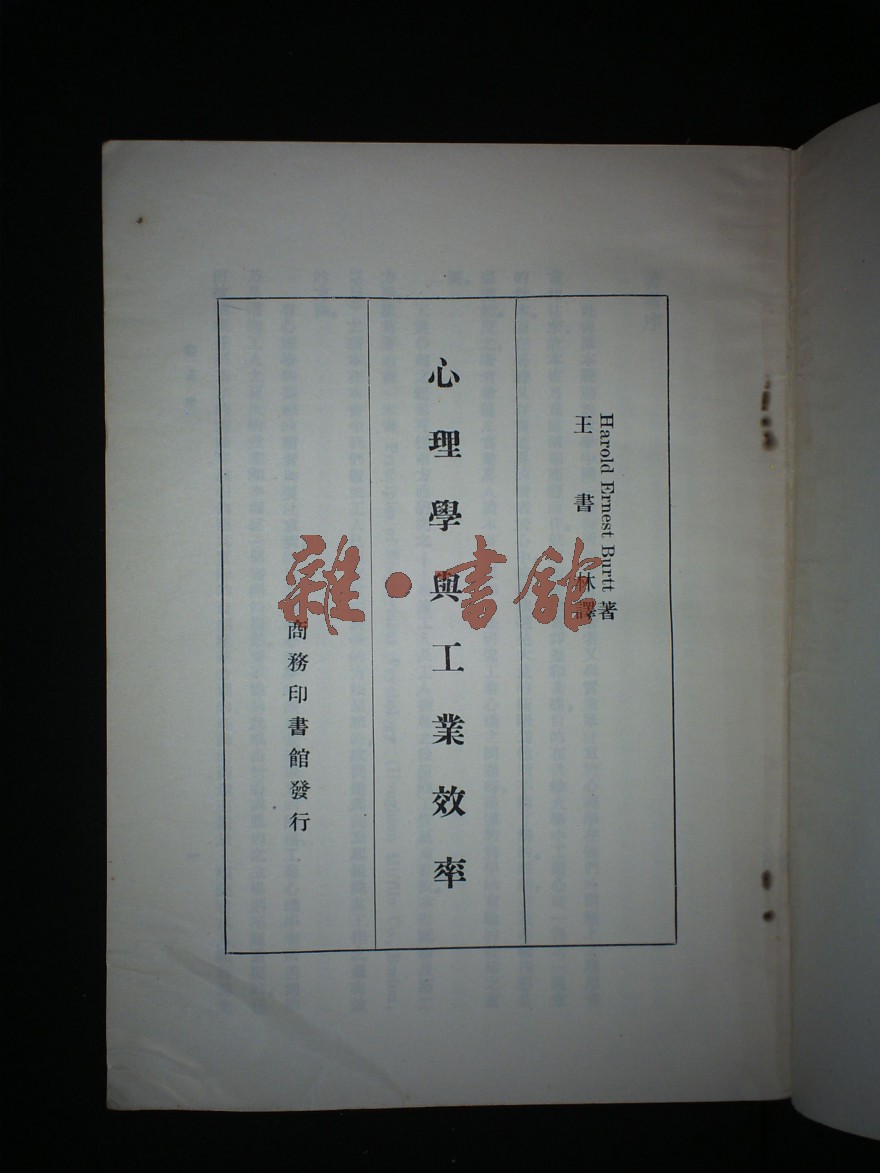 Harold Ernest Burtt 著
王書林譯
心理學與工業效率
商務印書館發行
雜·書館